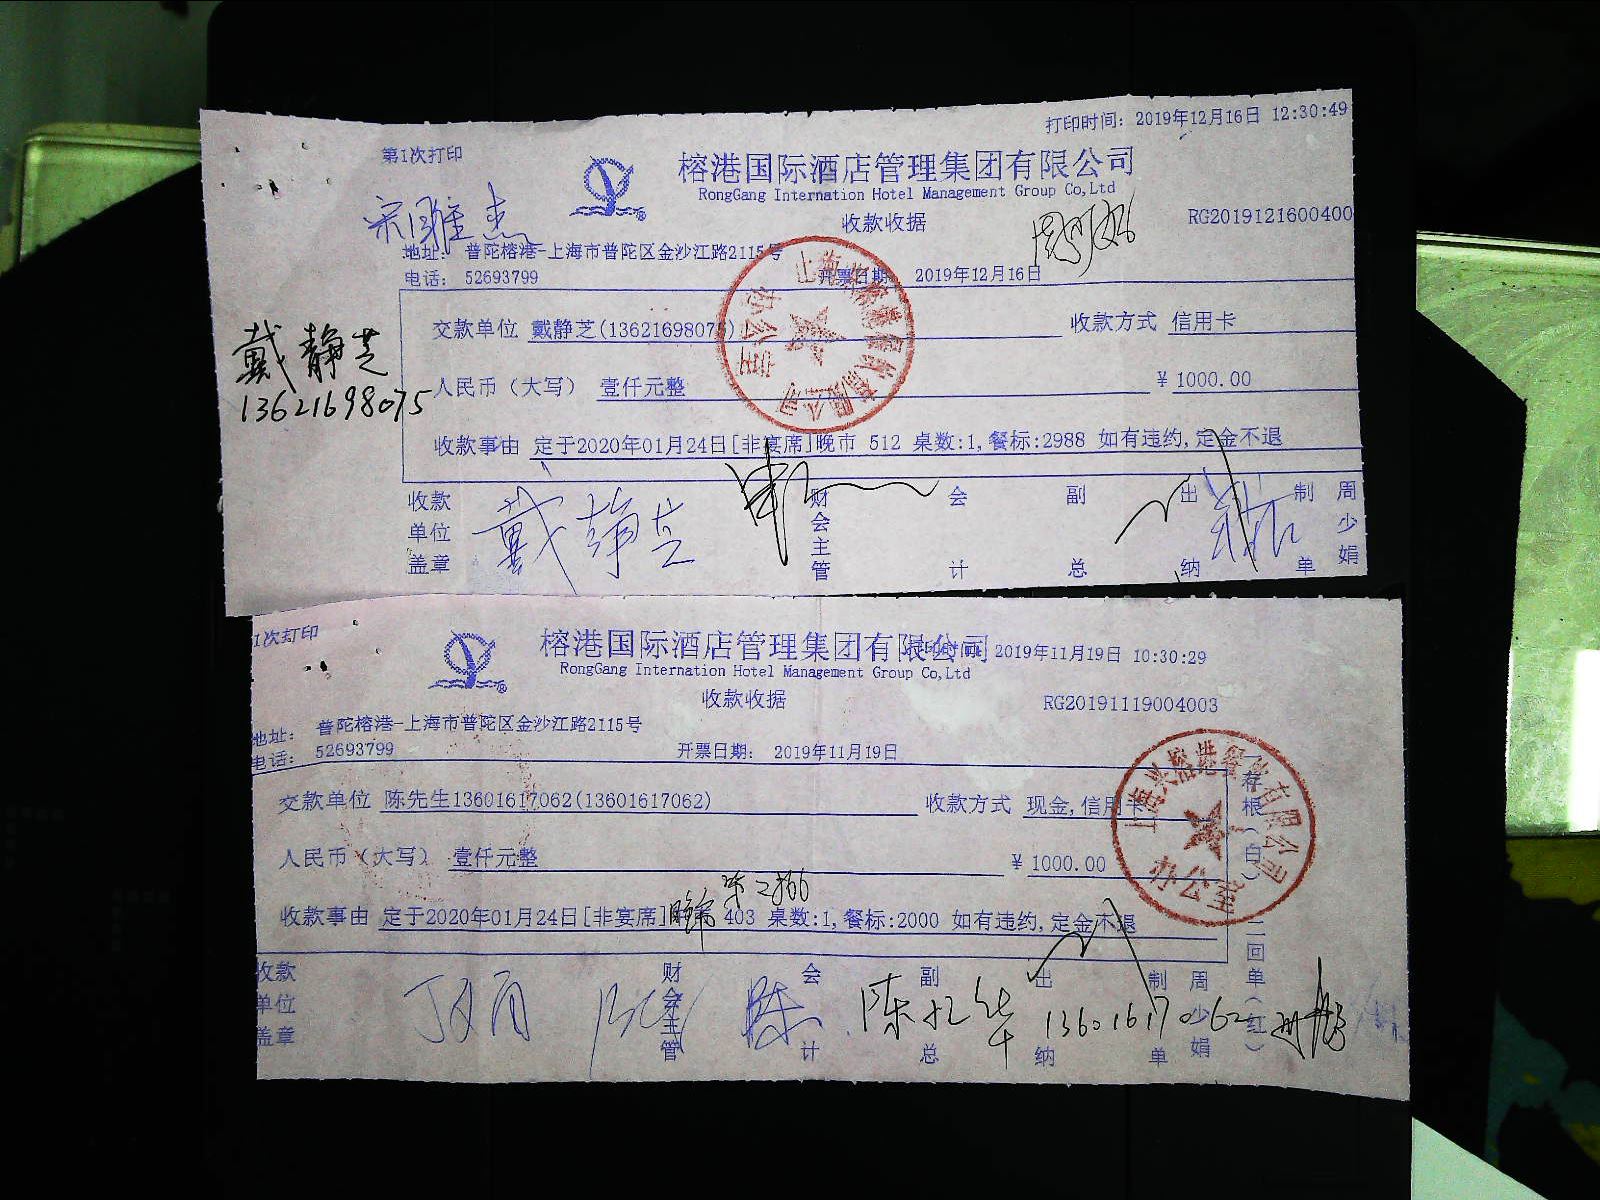 打印时间：2019年12月16日 12:30:49
第1次打印
榕港国际酒店管理集团有限公司
RongGang Internation Hotel Management Group Co,Ltd
收款收据
RG2019121600400
地址： 普陀榕港-上海市普陀区金沙江路2115号
电话： 52693799
开票日期： 2019年12月16日
交款单位 戴静芝(13621698075)
收款方式 信用卡
戴静芝
13621698075
人民币（大写） 壹仟元整
￥ 1000.00
收款事由 定于2020年01月24日[非宴席]晚市 512 桌数:1,餐标:2988 如有违约,定金不退
收款单位盖章 戴静芝 财会主管 会计 副总 出纳 制单 周少娟
1次打印
榕港国际酒店管理集团有限公司
2019年11月19日 10:30:29
RongGang Internation Hotel Management Group Co,Ltd
收款收据
RG20191119004003
地址： 普陀榕港-上海市普陀区金沙江路2115号
电话： 52693799
开票日期： 2019年11月19日
交款单位 陈先生13601617062(13601617062)
收款方式 现金,信用卡
上海兴榕港餐饮有限公司
办公室
存根（白） 二回单（红）
人民币（大写） 壹仟元整
￥ 1000.00
收款事由 定于2020年01月24日[非宴席] 403 桌数:1,餐标:2000 如有违约,定金不退
收款单位盖章 财会主管 会计 副总 出纳 制单 周少娟
13601617062